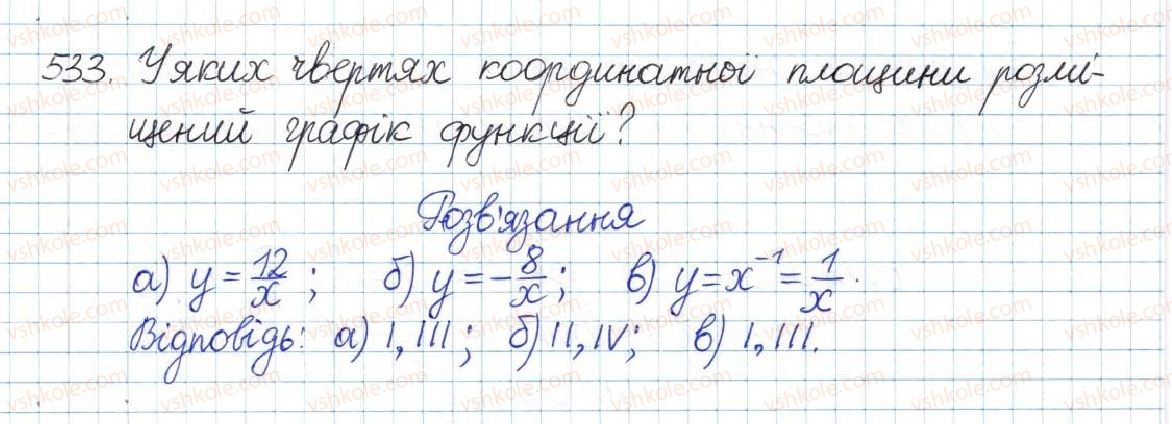 533. У яких чвертях координатної площини розмі-
щений графік функції?
Розв'язання
а) y = 12/x ; б) y = -8/x ; в) y = x⁻¹ = 1/x.
Відповідь: а) I, III ; б) II, IV; в) I, III.
vshkole.com